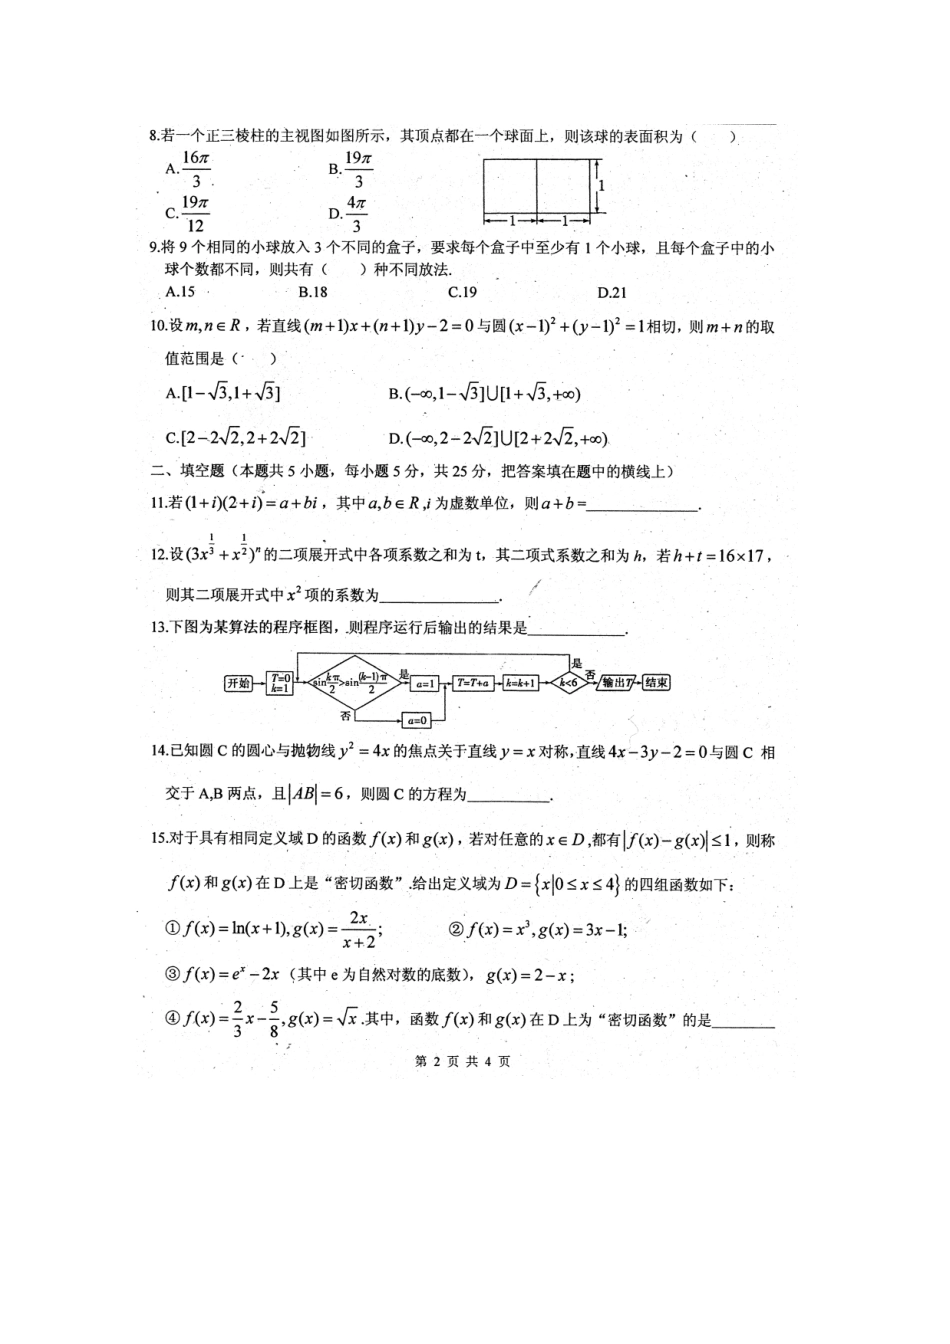 8.若一个正三棱柱的主视图如图所示，其顶点都在一个球面上，则该球的表面积为（ ）
A. 16π/3 B. 19π/3
C. 19π/12 D. 4π/3
1
1 1
9.将 9 个相同的小球放入 3 个不同的盒子，要求每个盒子中至少有 1 个小球，且每个盒子中的小
球个数都不同，则共有（ ）种不同放法.
A.15 B.18 C.19 D.21
10.设 m,n∈R，若直线(m+1)x+(n+1)y−2=0 与圆(x−1)²+(y−1)²=1相切，则 m+n 的取
值范围是（ ）
A.[1−√3,1+√3] B.(−∞,1−√3]∪[1+√3,+∞)
C.[2−2√2,2+2√2] D.(−∞,2−2√2]∪[2+2√2,+∞)
二、填空题（本题共 5 小题，每小题 5 分，共 25 分，把答案填在题中的横线上）
11.若(1+i)(2+i)=a+bi，其中 a,b∈R,i 为虚数单位，则 a+b=________.
12.设(3x^(1/3)+x^(1/2))^n 的二项展开式中各项系数之和为 t，其二项式系数之和为 h，若 h+t=16×17，
则其二项展开式中 x² 项的系数为________.
13.下图为某算法的程序框图，则程序运行后输出的结果是________.
开始 T=0 k=1 sin kπ/2>sin (k-1)π/2 是 a=1 T=T+a k=k+1 k<6 是 否 输出T 结束
否 a=0
14.已知圆 C 的圆心与抛物线 y²=4x 的焦点关于直线 y=x 对称,直线 4x−3y−2=0 与圆 C 相
交于 A,B 两点，且|AB|=6，则圆 C 的方程为________.
15.对于具有相同定义域 D 的函数 f(x) 和 g(x)，若对任意的 x∈D,都有|f(x)−g(x)|≤1，则称
f(x) 和 g(x) 在 D 上是“密切函数”.给出定义域为 D={x|0≤x≤4} 的四组函数如下：
①f(x)=ln(x+1),g(x)=2x/(x+2); ②f(x)=x³,g(x)=3x−1;
③f(x)=e^x−2x（其中 e 为自然对数的底数），g(x)=2−x；
④f(x)=2/3x−5/8,g(x)=√x.其中，函数 f(x) 和 g(x) 在 D 上为“密切函数”的是________
第 2 页 共 4 页